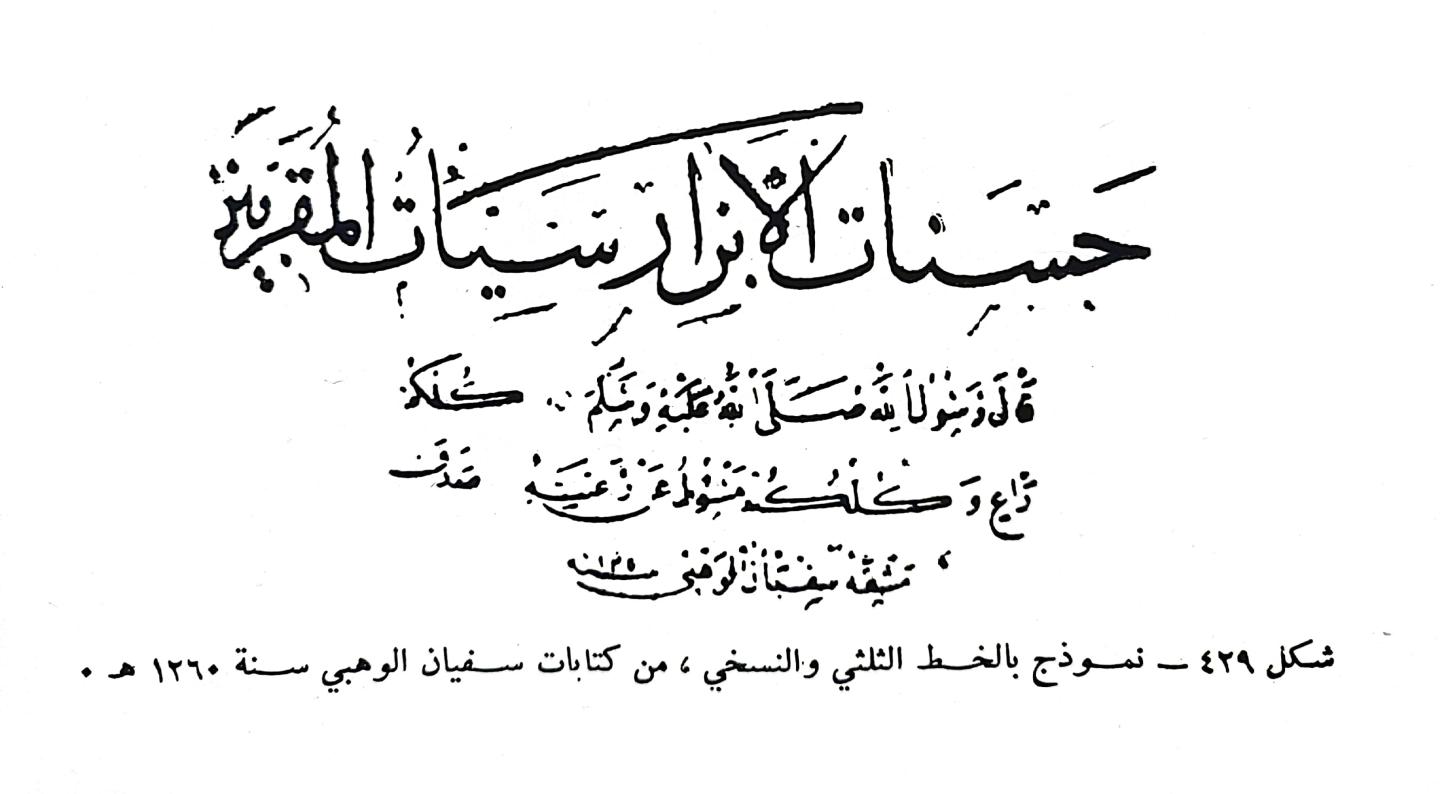 حَسَنَاتُ الْأَبْرَارِ سَيِّئَاتُ الْمُقَرَّبِينَ
قَالَ رَسُولُ اللهِ صَلَّى اللهُ عَلَيْهِ وَسَلَّمَ كُلُّكُمْ
رَاعٍ وَكُلُّكُمْ مَسْئُولٌ عَنْ رَعِيَّتِهِ صدق
مشقه سفيان الوهبي سنه
شكل ٤٢٩ ــ نموذج بالخط الثلثي والنسخي ، من كتابات سفيان الوهبي سنة ١٢٦٠ هـ ٠